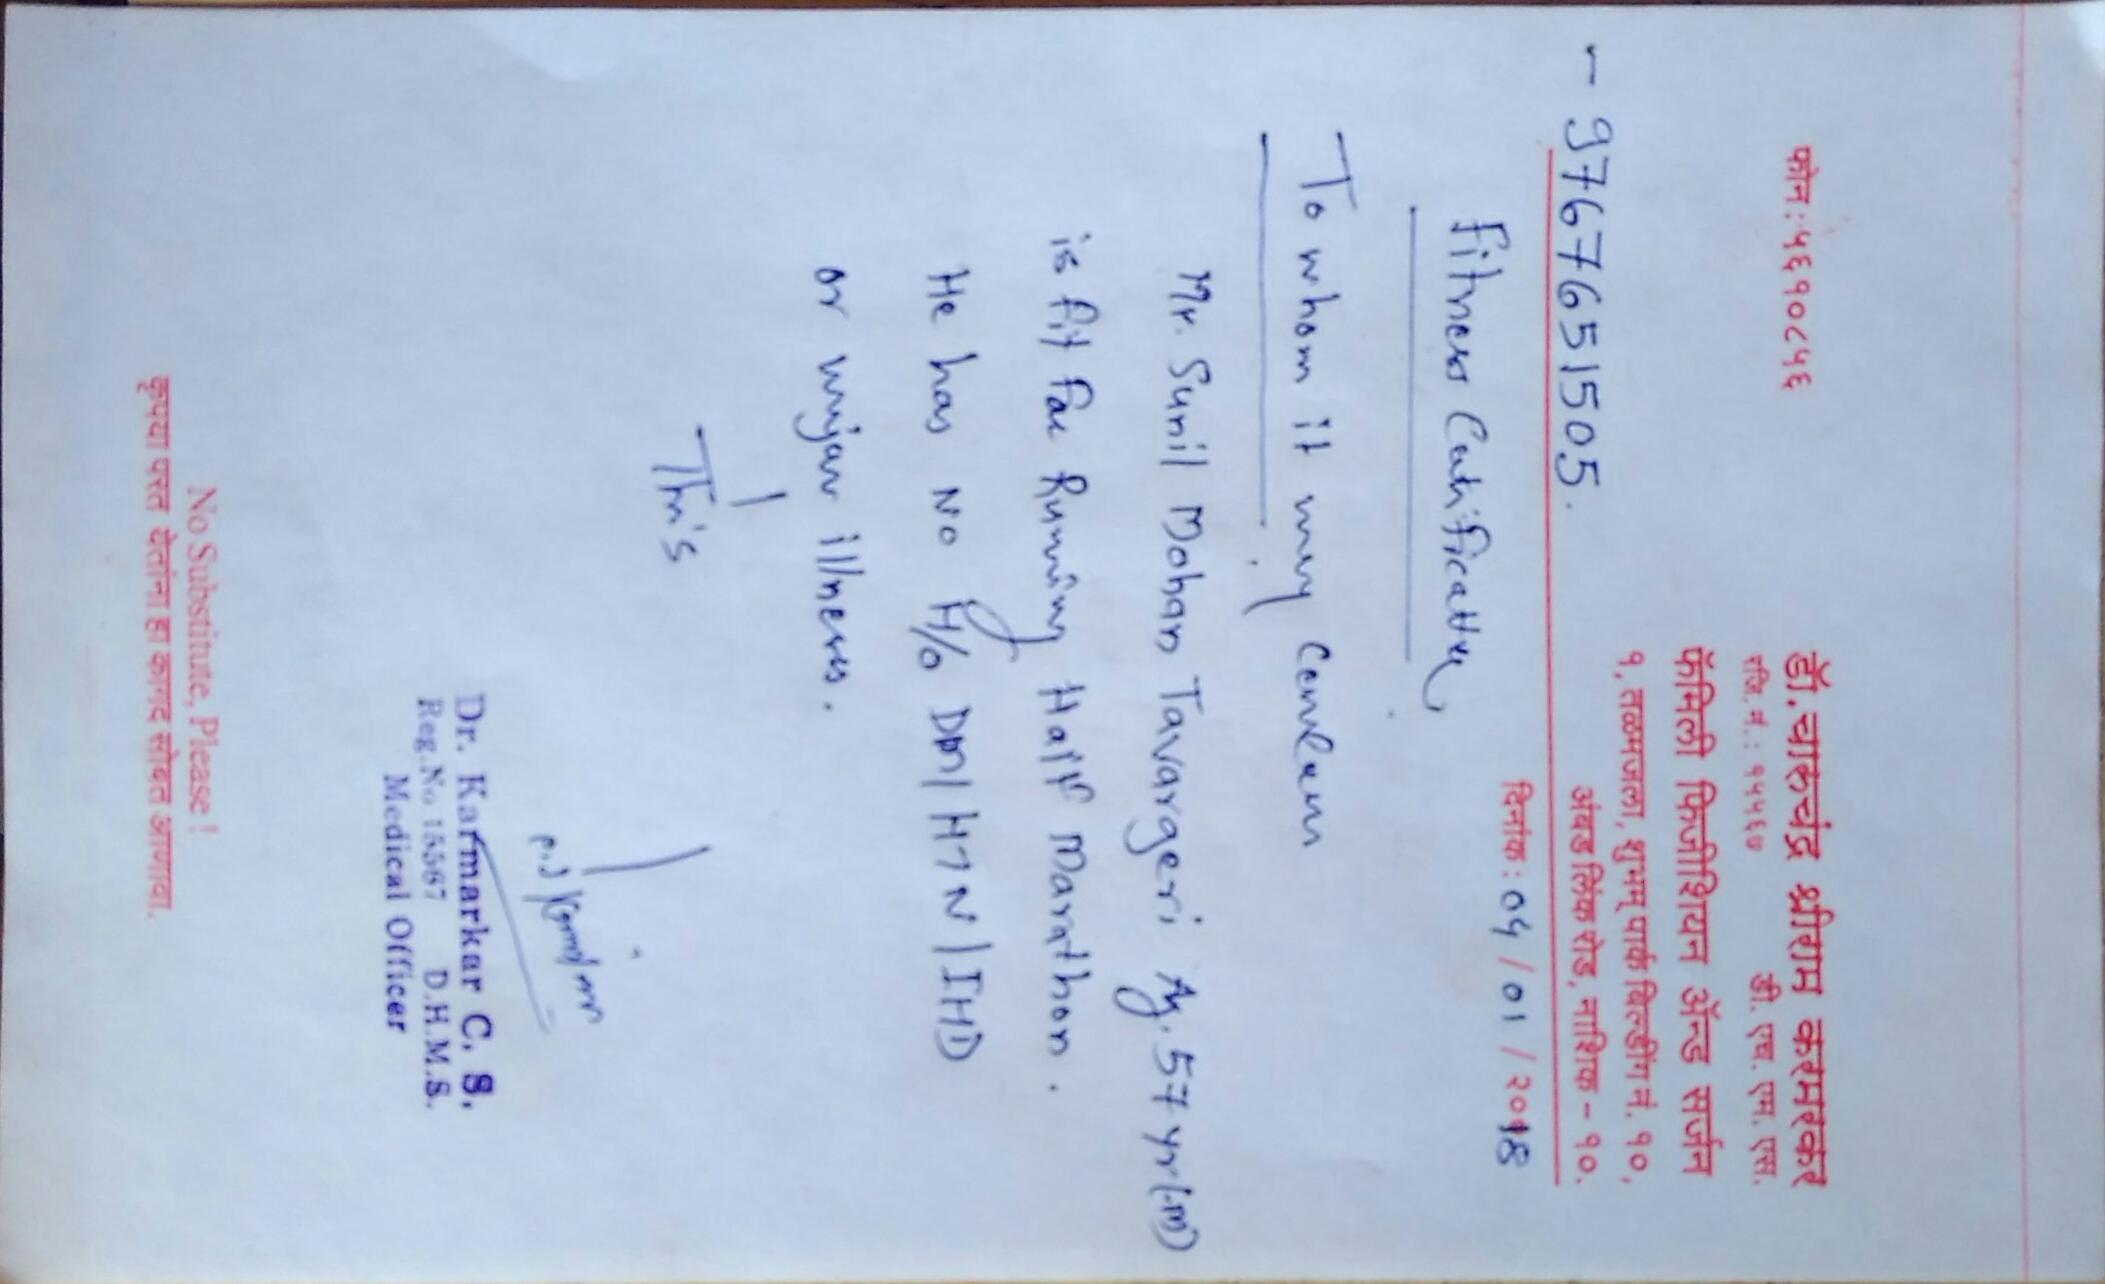 डॉ. चारुचंद्र श्रीराम करमरकर
फोन: ५६१०८५६ रजि. नं.: १५५६७ डी. एच. एम. एस.
फॅमिली फिजीशियन ॲन्ड सर्जन
१, तळमजला, शुभम् पार्क बिल्डींग नं. १०,
- 9767651505. अंबड लिंक रोड, नाशिक - १०.
दिनांक: 04/01/२०18
Fitness Certificate
To whom it may Concern
Mr. Sunil Mohan Tavargeri Ag. 57 yr (m)
is fit for Running Half Marathon.
He has No H/o DM/HTN/IHD
or major illness.
This
Dr. Karmarkar C. S.
Reg. No 15567 D.H.M.S.
Medical Officer
No Substitute, Please!
कृपया परत येतांना हा कागद सोबत आणावा.